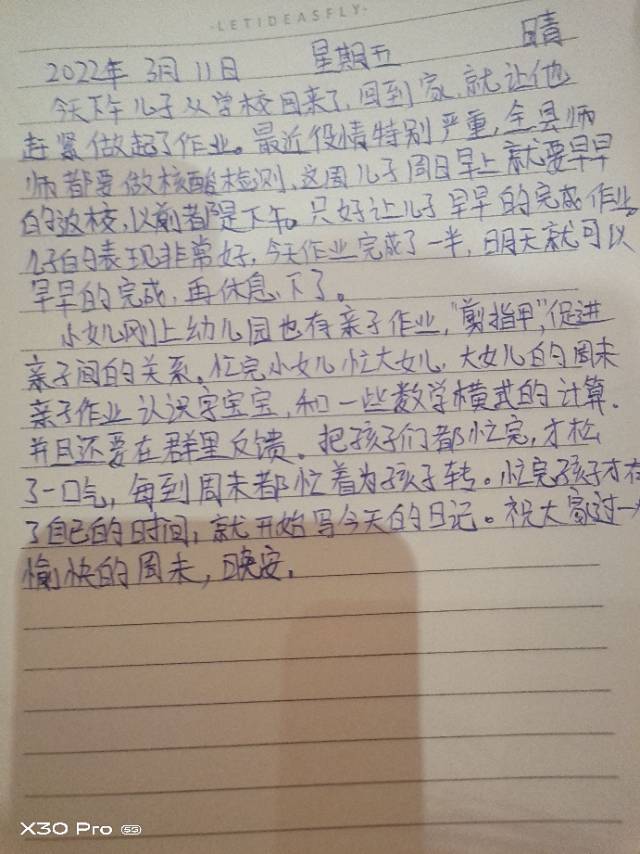 ·LETIDEASFLY·
2022年 3月 11日 星期五 晴
今天下午儿子从学校回来了,回到家,就让他
赶紧做起了作业。最近役情特别严重,全县师
师都要做核酸检测,这周儿子周日早上就要早早
的返校,以前都是下午。只好让儿子早早的完成作业。
儿子的表现非常好,今天作业完成了一半,明天就可以
早早的完成,再休息下了。
小女儿刚上幼儿园也有亲子作业,"剪指甲",促进
亲子间的关系。忙完小女儿忙大女儿,大女儿的周末
亲子作业认识字宝宝,和一些数学横式的计算.
并且还要在群里反馈。把孩子们都忙完,才松
了一口气,每到周末都忙着为孩子转。忙完孩子才有
了自己的时间,就开始写今天的日记。祝大家过一
愉快的周末,晚安.
X30 Pro 5G